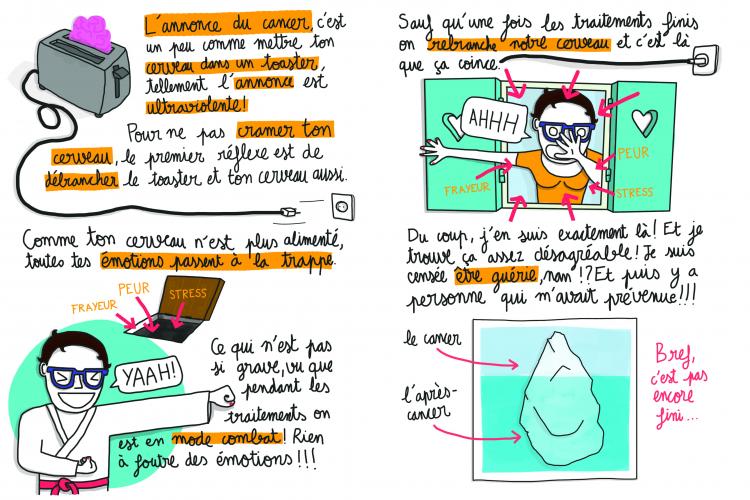 L'annonce du cancer, c'est
un peu comme mettre ton
cerveau dans un toaster,
tellement l'annonce est
ultraviolente!
Pour ne pas cramer ton
cerveau, le premier réflexe est de
débrancher le toaster et ton cerveau aussi.
Comme ton cerveau n'est plus alimenté,
toutes tes émotions passent à la trappe.
FRAYEUR
PEUR
STRESS
YAAH!
Ce qui n'est pas
si grave, vu que
pendant les
traitements on
est en mode combat! Rien
à foutre des émotions!!!
Sauf qu'une fois les traitements finis
on rebranche notre cerveau et c'est là
que ça coince.
AHHH
FRAYEUR
PEUR
STRESS
Du coup, j'en suis exactement là! Et je
trouve ça assez désagréable! Je suis
censée être guérie, nan!? Et puis y a
personne qui m'avait prévenue!!!
le cancer
l'après-
cancer
Bref,
c'est pas
encore
fini...